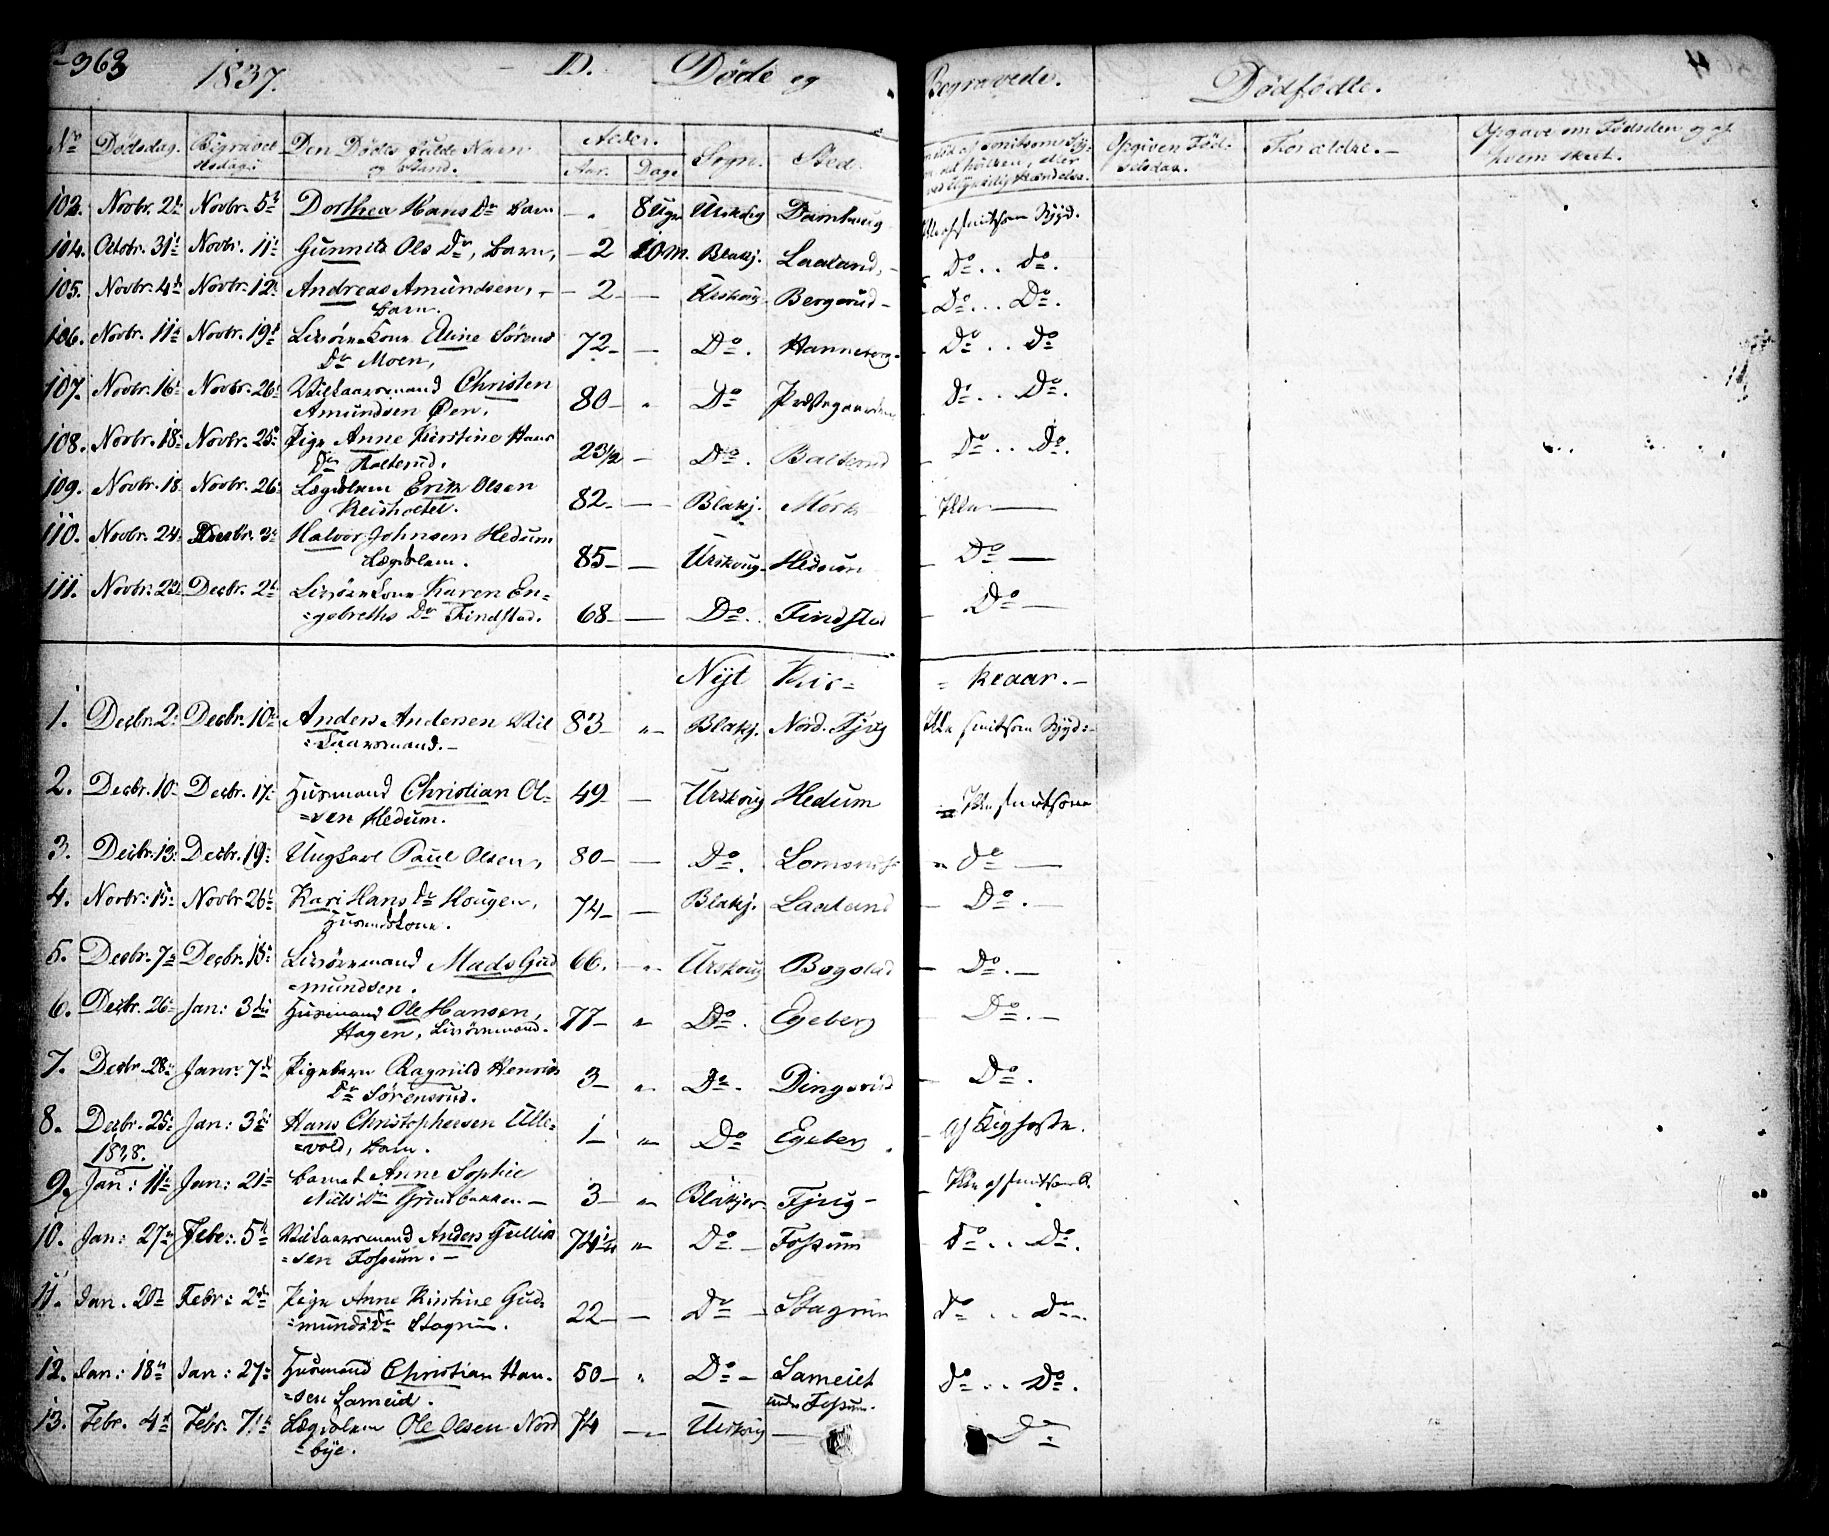 363
1837. — D. Døde og Begravede. Dødfødte. 4
No Dødsdag. Begravelsesdag. Den Dødes fulde Navn og Stand. Alder. Aar. Dage Sogn. Sted. Opgiven Fødselsdag. Forældre. — Opgave om Fødselen og af hvem skeet.
103. Novbr. 2 Novbr. 5 Dorthea Hans Dr Barn — " 8 Ugr Urskoug
104. Octbr. 31 Novbr. 11 Gunnild Ols Dr, Barn, — 2 10 M. Blakj. Laaland, — Do . . Do.
105. Novbr. 4 Novbr. 12 Andreas Amundsen, — 2 — — Urskoug Bergerud — Do . . . Do.
Barn.
106. Novbr. 11 Novbr. 19 Kone Eline Sørens 72 — — Do. Hanneborg Do . . Do
Dr Moen,
107. Novbr. 16 Novbr. 26 Vilkaarsmand Christen
Amundsen Øen. 80 — " Do Præstegaarden Do . . Do.
108. Novbr. 18 Novbr. 25 Pige Anne Kirstine Hans
Dr 23 1/2 — Do. Do . . Do.
109. Novbr. 18 Novbr. 26 Lægdslem Erik Olsen
82 — — Blakj. Mork Ikke —
110. Novbr. 24 Decbr. 3 Halvor Johnsen Hedum
Lægdslem. 85 — — Urskoug Hedum Do —
111. Novbr. 23 Decbr. 2 Kone Karen En=
=gebreths Dr Findstad. 68 — — Do. Findstad Do —
Nyt Kir= =keaar. —
1. Decbr. 2 Decbr. 10 Anders Andersen Vil 83 — " Blakj. Nord. Fjug Ikke smitsom Sygd: —
=kaarsmand. —
2. Decbr. 10 Decbr. 17 Husmand Christian Ol= 49 — — Urskoug Hedum Ikke smitsom
=sen Hedum.
3. Decbr. 13 Decbr. 19 Ungkarl Paul Olsen, 80 — — Do. " do —
4. Novbr. 15 Novbr 26 Kari Hans Dr Hougen, 74 — — Blakj. Laaland — Do. —
Husmandskone.
5. Decbr. 7 Decbr. 18 Mads Gud 66. — " Urskoug Bogstad — Do. —
=mundsen.
6. Decbr. 26 Jan: 3die Husmand Ole Hansen, 77 — " Do. Egeberg Do. —
Hagen,
7. Decbr. 28 Janr: 7 Pigebarn Ragnild Henriks 3 — " Do. Dingsrud — Do.
Dr Sørensrud.
8. Decbr. 25 Jan: 3 Hans Christophersen Ulle= 1 — " Do Egeberg — af Kighoste.
1838. =vold, Barn.
9. Jan: 11 Jan: 21 Barnet Anne Sophie
Niels Dr Grindbakken — 3 — " Blakjer Fjug — Ikke af smitsom S.
10. Jan: 27 Febr: 5 Vilkaarsmand Anders Gullik 74 " Do. — Fossum Do . . Do.
=sen Fossum. —
11. Jan. 20 Febr: 2 Pige Anne Kirstine Gud=
=munds Dr 22 — — Do — Do . . Do.
12. Jan: 18 Jan: 27 Husmand Christian Han= 50 — " Do — Sameiet Do . . Do.
=sen Sameid. under Fossum.
13. Febr. 4 Febr. 7 Lægdslem Ole Olsen Nord 74 — " Urskoug — Do
=bye.